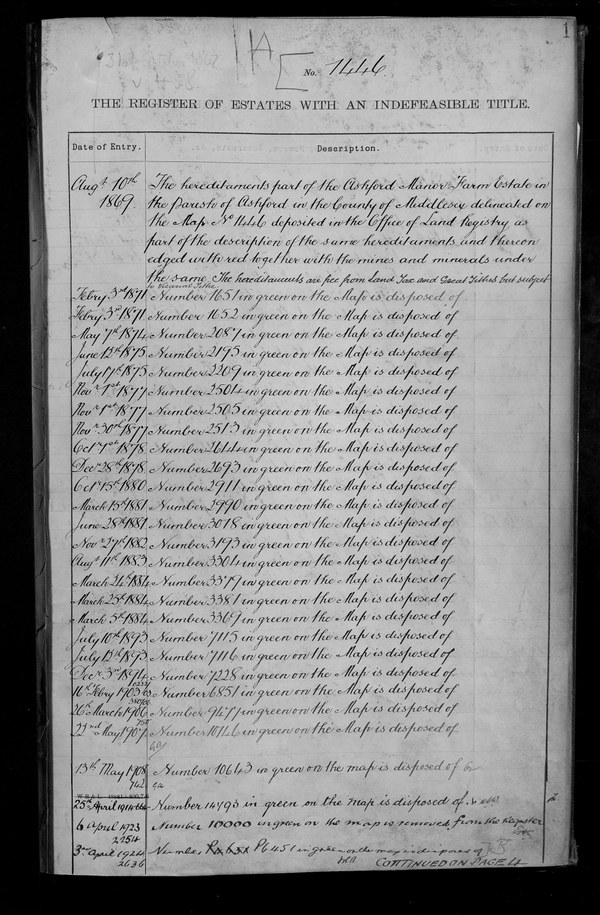 1
1A
No. 1446
THE REGISTER OF ESTATES WITH AN INDEFEASIBLE TITLE.
Date of Entry. Description.
Augt 10th 1869 The hereditaments part of the Ashford Manor Farm Estate in
the Parish of Ashford in the County of Middlesex delineated on
the Map No 1446 deposited in the Office of Land Registry as
part of the description of the same hereditaments and thereon
edged with red together with the mines and minerals under
the same. The hereditaments are free from Land Tax and Great Tithes but subject
to Vicarial Tithe
Febry 3rd 1871 Number 1651 in green on the Map is disposed of
Febry 3rd 1871 Number 1652 in green on the Map is disposed of
May 7th 1874 Number 2087 in green on the Map is disposed of
June 12th 1875 Number 2195 in green on the Map is disposed of
July 17th 1875 Number 2209 in green on the Map is disposed of
Novr 1st 1877 Number 2504 in green on the Map is disposed of
Novr 1st 1877 Number 2505 in green on the Map is disposed of
Novr 30th 1877 Number 2513 in green on the Map is disposed of
Octr 1st 1878 Number 2614 in green on the Map is disposed of
Decr 28th 1878 Number 2693 in green on the Map is disposed of
Octr 15th 1880 Number 2911 in green on the Map is disposed of
March 15th 1881 Number 2990 in green on the Map is disposed of
June 28th 1881 Number 3018 in green on the Map is disposed of
Novr 27th 1882 Number 3193 in green on the Map is disposed of
Augt 11th 1883 Number 3304 in green on the Map is disposed of
March 24th 1884 Number 3379 in green on the Map is disposed of
March 25th 1884 Number 3381 in green on the Map is disposed of
March 5th 1884 Number 3369 in green on the Map is disposed of
July 10th 1893 Number 7115 in green on the Map is disposed of
July 12th 1893 Number 7116 in green on the Map is disposed of
Decr 3rd 1894 Number 7228 in green on the Map is disposed of
16th Febry 1903 Number 6851 in green on the Map is disposed of
26th March 1906 Number 9477 in green on the Map is disposed of
22nd May 1907 Number 10146 in green on the Map is disposed of
13th May 1908 Number 10643 in green on the map is disposed of
742
25th April 1914 Number 14793 in green on the Map is disposed of
6 April 1923 Number 10000 in green on the map is removed from the Register
2254
3rd April 1924 Number P6451 in green on the map is disposed of
2636
CONTINUED ON PAGE 4